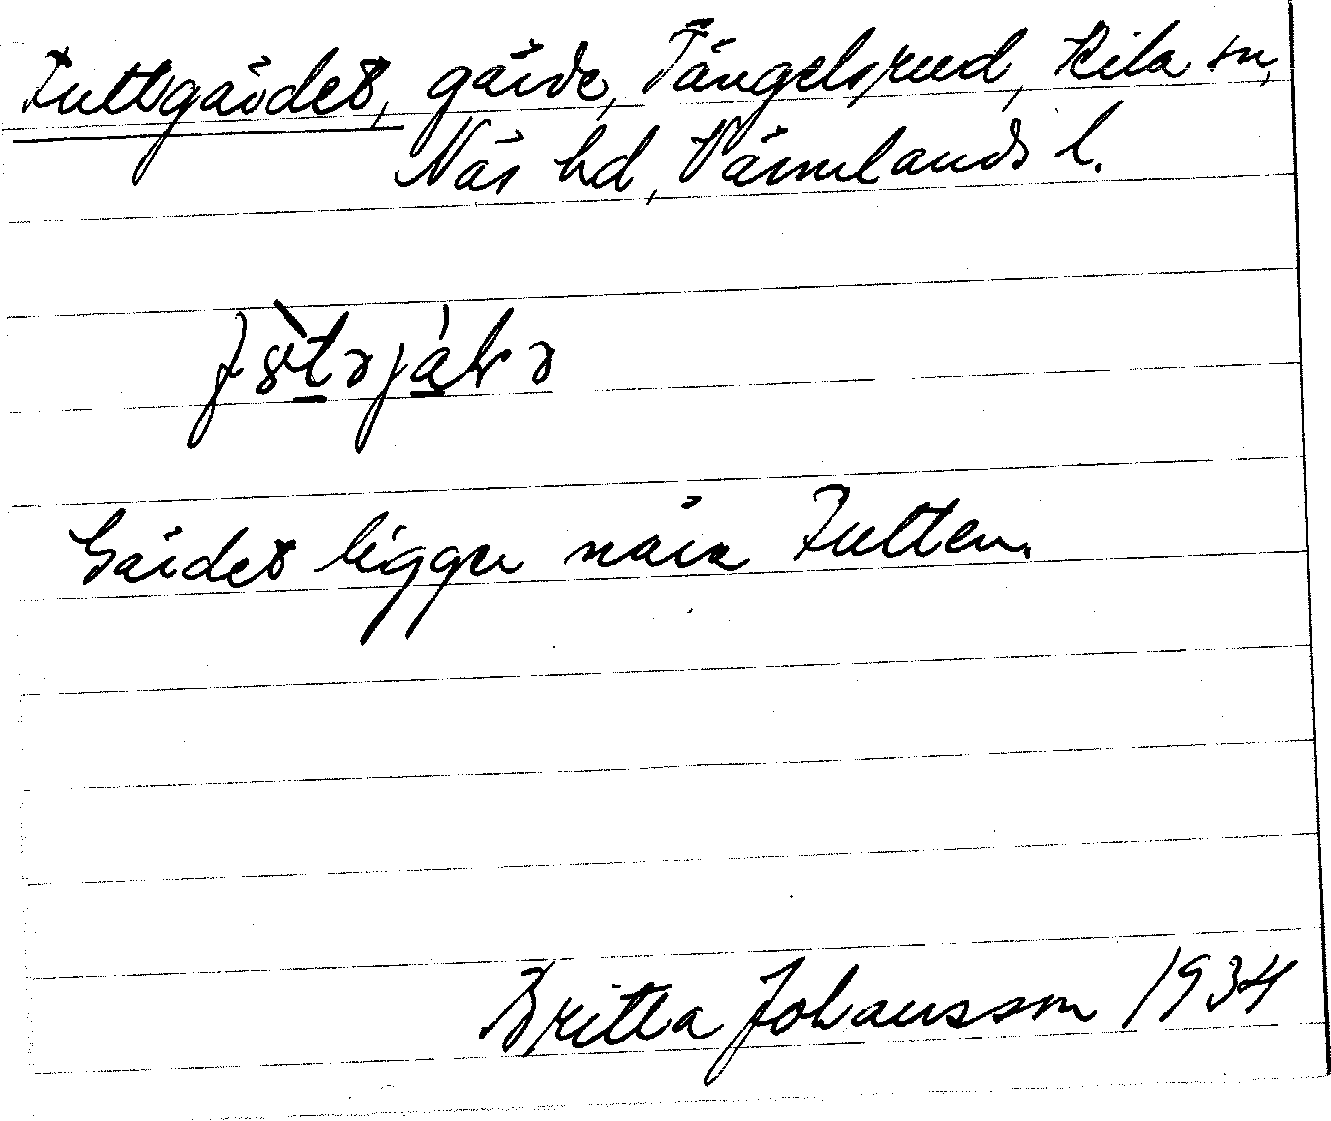 Futtsgärdet, gärde, Tängelsrud, Kila sn,
Näs hd, Värmlands l.
Gärdet ligger nära Futten.
Britta Johansson 1934